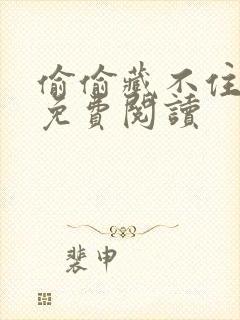 偷偷藏不住
免費閱讀
裴申